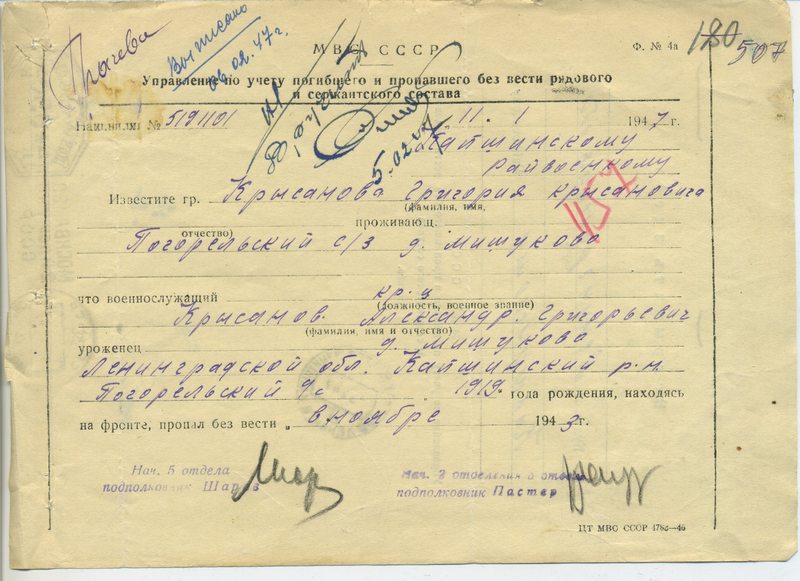 Выписано
06.02.47г.
180 507
МВС СССР
Ф. № 4а
Управление по учету погибшего и пропавшего без вести рядового
и сержантского состава
5.02.47
№ 519101
11. 1 1947 г.
Капшинскому
Райвоенкому
Известите гр. Крысанова Григория Крысановича
(фамилия, имя,
1157
отчество)
проживающ.
Погорельский с/з д. Мишуково
что военнослужащий кр-ц
(должность, военное звание)
Крысанов Александр Григорьевич
(фамилия, имя и отчество)
уроженец д. Мишуково
Ленинградской обл. Капшинский р-н
Погорельский с/с 1919 года рождения, находясь
на фронте, пропал без вести „ в ноябре 1943 г.
Нач. 5 отдела
подполковник Шаров
Нач. 3 отделения 5 отдела
подполковник Пастер
ЦТ МВС СССР 4783—46